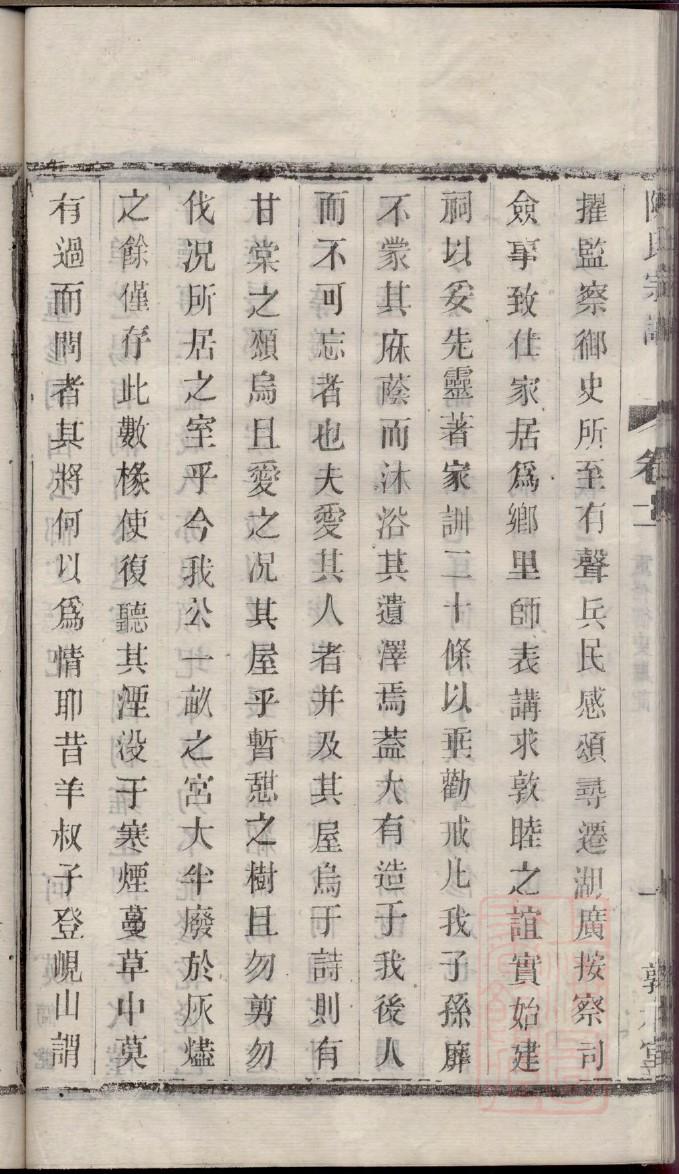 擢監察御史所至有聲兵民感頌尋遷湖廣按察司
僉事致仕家居爲鄉里師表講求敦睦之誼實始建
祠以妥先靈著家訓二十條以垂勸戒凡我子孫靡
不蒙其庥蔭而沐浴其遺澤焉葢大有造于我後人
而不可忘者也夫愛其人者并及其屋烏于詩則有
甘棠之頌烏且愛之况其屋乎暫憇之樹且勿剪勿
伐况所居之室乎今我公一畝之宮大半廢於灰燼
之餘僅存此數椽使復聽其湮没于寒煙蔓草中莫
有過而問者其將何以爲情耶昔羊叔子登峴山謂